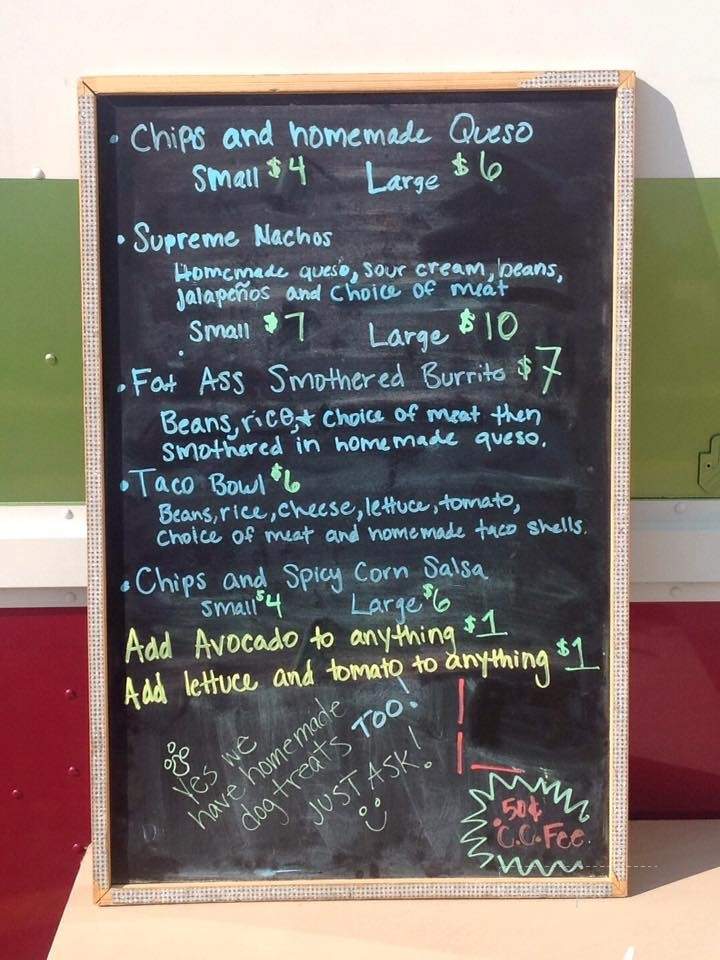 • Chips and homemade Queso
Small $4 Large $6
• Supreme Nachos
Homemade queso, sour cream, beans,
jalapeños and choice of meat
Small $7 Large $10
• Fat Ass Smothered Burrito $7
Beans, rice, + choice of meat then
smothered in homemade queso.
• Taco Bowl $6
Beans, rice, cheese, lettuce, tomato,
choice of meat and homemade taco shells.
• Chips and Spicy Corn Salsa
small $4 Large $6
Add Avocado to anything $1
Add lettuce and tomato to anything $1
Yes we
have homemade
dog treats TOO!
JUST ASK!
50¢
C.C. Fee